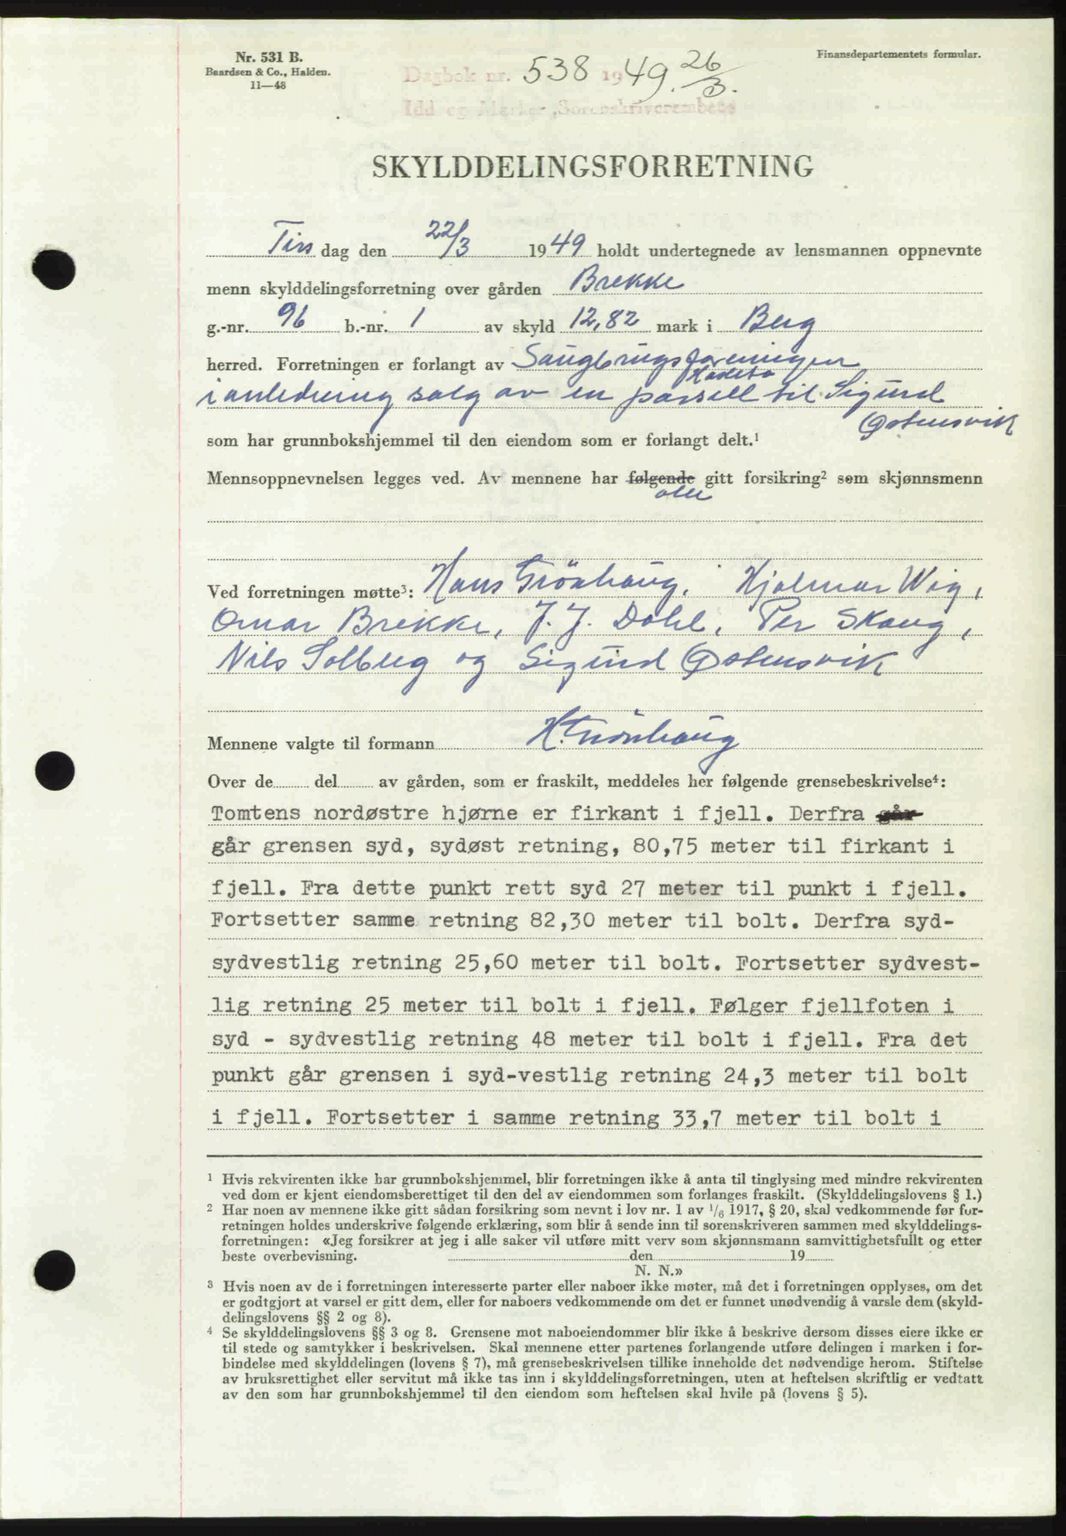 Nr. 531 B.
Baardsen & Co., Halden.
11—48
Finansdepartementets formular.
Dagbok nr. 538 1949. 26/3.
Idd og Marker Sorenskriverembete
SKYLDDELINGSFORRETNING
Tirs dag den 22/3 1949 holdt undertegnede av lensmannen oppnevnte
menn skylddelingsforretning over gården Brekke
g.-nr. 96 b.-nr. 1 av skyld 12,82 mark i Berg
herred. Forretningen er forlangt av Saugbrugsforeningen
i anledning salg av en parsell til Sigurd
Østensvik
som har grunnbokshjemmel til den eiendom som er forlangt delt.¹
Mennsoppnevnelsen legges ved. Av mennene har følgende gitt forsikring² som skjønnsmenn
alle
Ved forretningen møtte³: Hans Grönhaug, Hjalmar Wig,
Omar Brekke, J. J. Dahl, Per Skaug,
Nils Solberg og Sigurd Østensvik
Mennene valgte til formann H. Grönhaug
Over de del av gården, som er fraskilt, meddeles her følgende grensebeskrivelse⁴:
Tomtens nordøstre hjørne er firkant i fjell. Derfra går
går grensen syd, sydøst retning, 80,75 meter til firkant i
fjell. Fra dette punkt rett syd 27 meter til punkt i fjell.
Fortsetter samme retning 82,30 meter til bolt. Derfra syd-
sydvestlig retning 25,60 meter til bolt. Fortsetter sydvest-
lig retning 25 meter til bolt i fjell. Følger fjellfoten i
syd - sydvestlig retning 48 meter til bolt i fjell. Fra det
punkt går grensen i syd-vestlig retning 24,3 meter til bolt
i fjell. Fortsetter i samme retning 33,7 meter til bolt i
¹ Hvis rekvirenten ikke har grunnbokshjemmel, blir forretningen ikke å anta til tinglysing med mindre rekvirenten
ved dom er kjent eiendomsberettiget til den del av eiendommen som forlanges fraskilt. (Skylddelingslovens § 1.)
² Har noen av mennene ikke gitt sådan forsikring som nevnt i lov nr. 1 av ¹/₆ 1917, § 20, skal vedkommende før for-
retningen holdes underskrive følgende erklæring, som blir å sende inn til sorenskriveren sammen med skylddelings-
forretningen: «Jeg forsikrer at jeg i alle saker vil utføre mitt verv som skjønnsmann samvittighetsfullt og etter
beste overbevisning. den 19
N. N.»
³ Hvis noen av de i forretningen interesserte parter eller naboer ikke møter, må det i forretningen opplyses, om det
er godtgjort at varsel er gitt dem, eller for naboers vedkommende om det er funnet unødvendig å varsle dem (skyld-
delingslovens §§ 2 og 8).
⁴ Se skylddelingslovens §§ 3 og 8. Grensene mot naboeiendommer blir ikke å beskrive dersom disses eiere ikke er
til stede og samtykker i beskrivelsen. Skal mennene etter partenes forlangende utføre delingen i marken i for-
bindelse med skylddelingen (lovens § 7), må grensebeskrivelsen tillike inneholde det nødvendige herom. Stiftelse
av bruksrettighet eller servitut må ikke tas inn i skylddelingsforretningen, uten at heftelsen skriftlig er vedtatt
av den som har grunnbokshjemmel til den eiendom som heftelsen skal hvile på (lovens § 5).